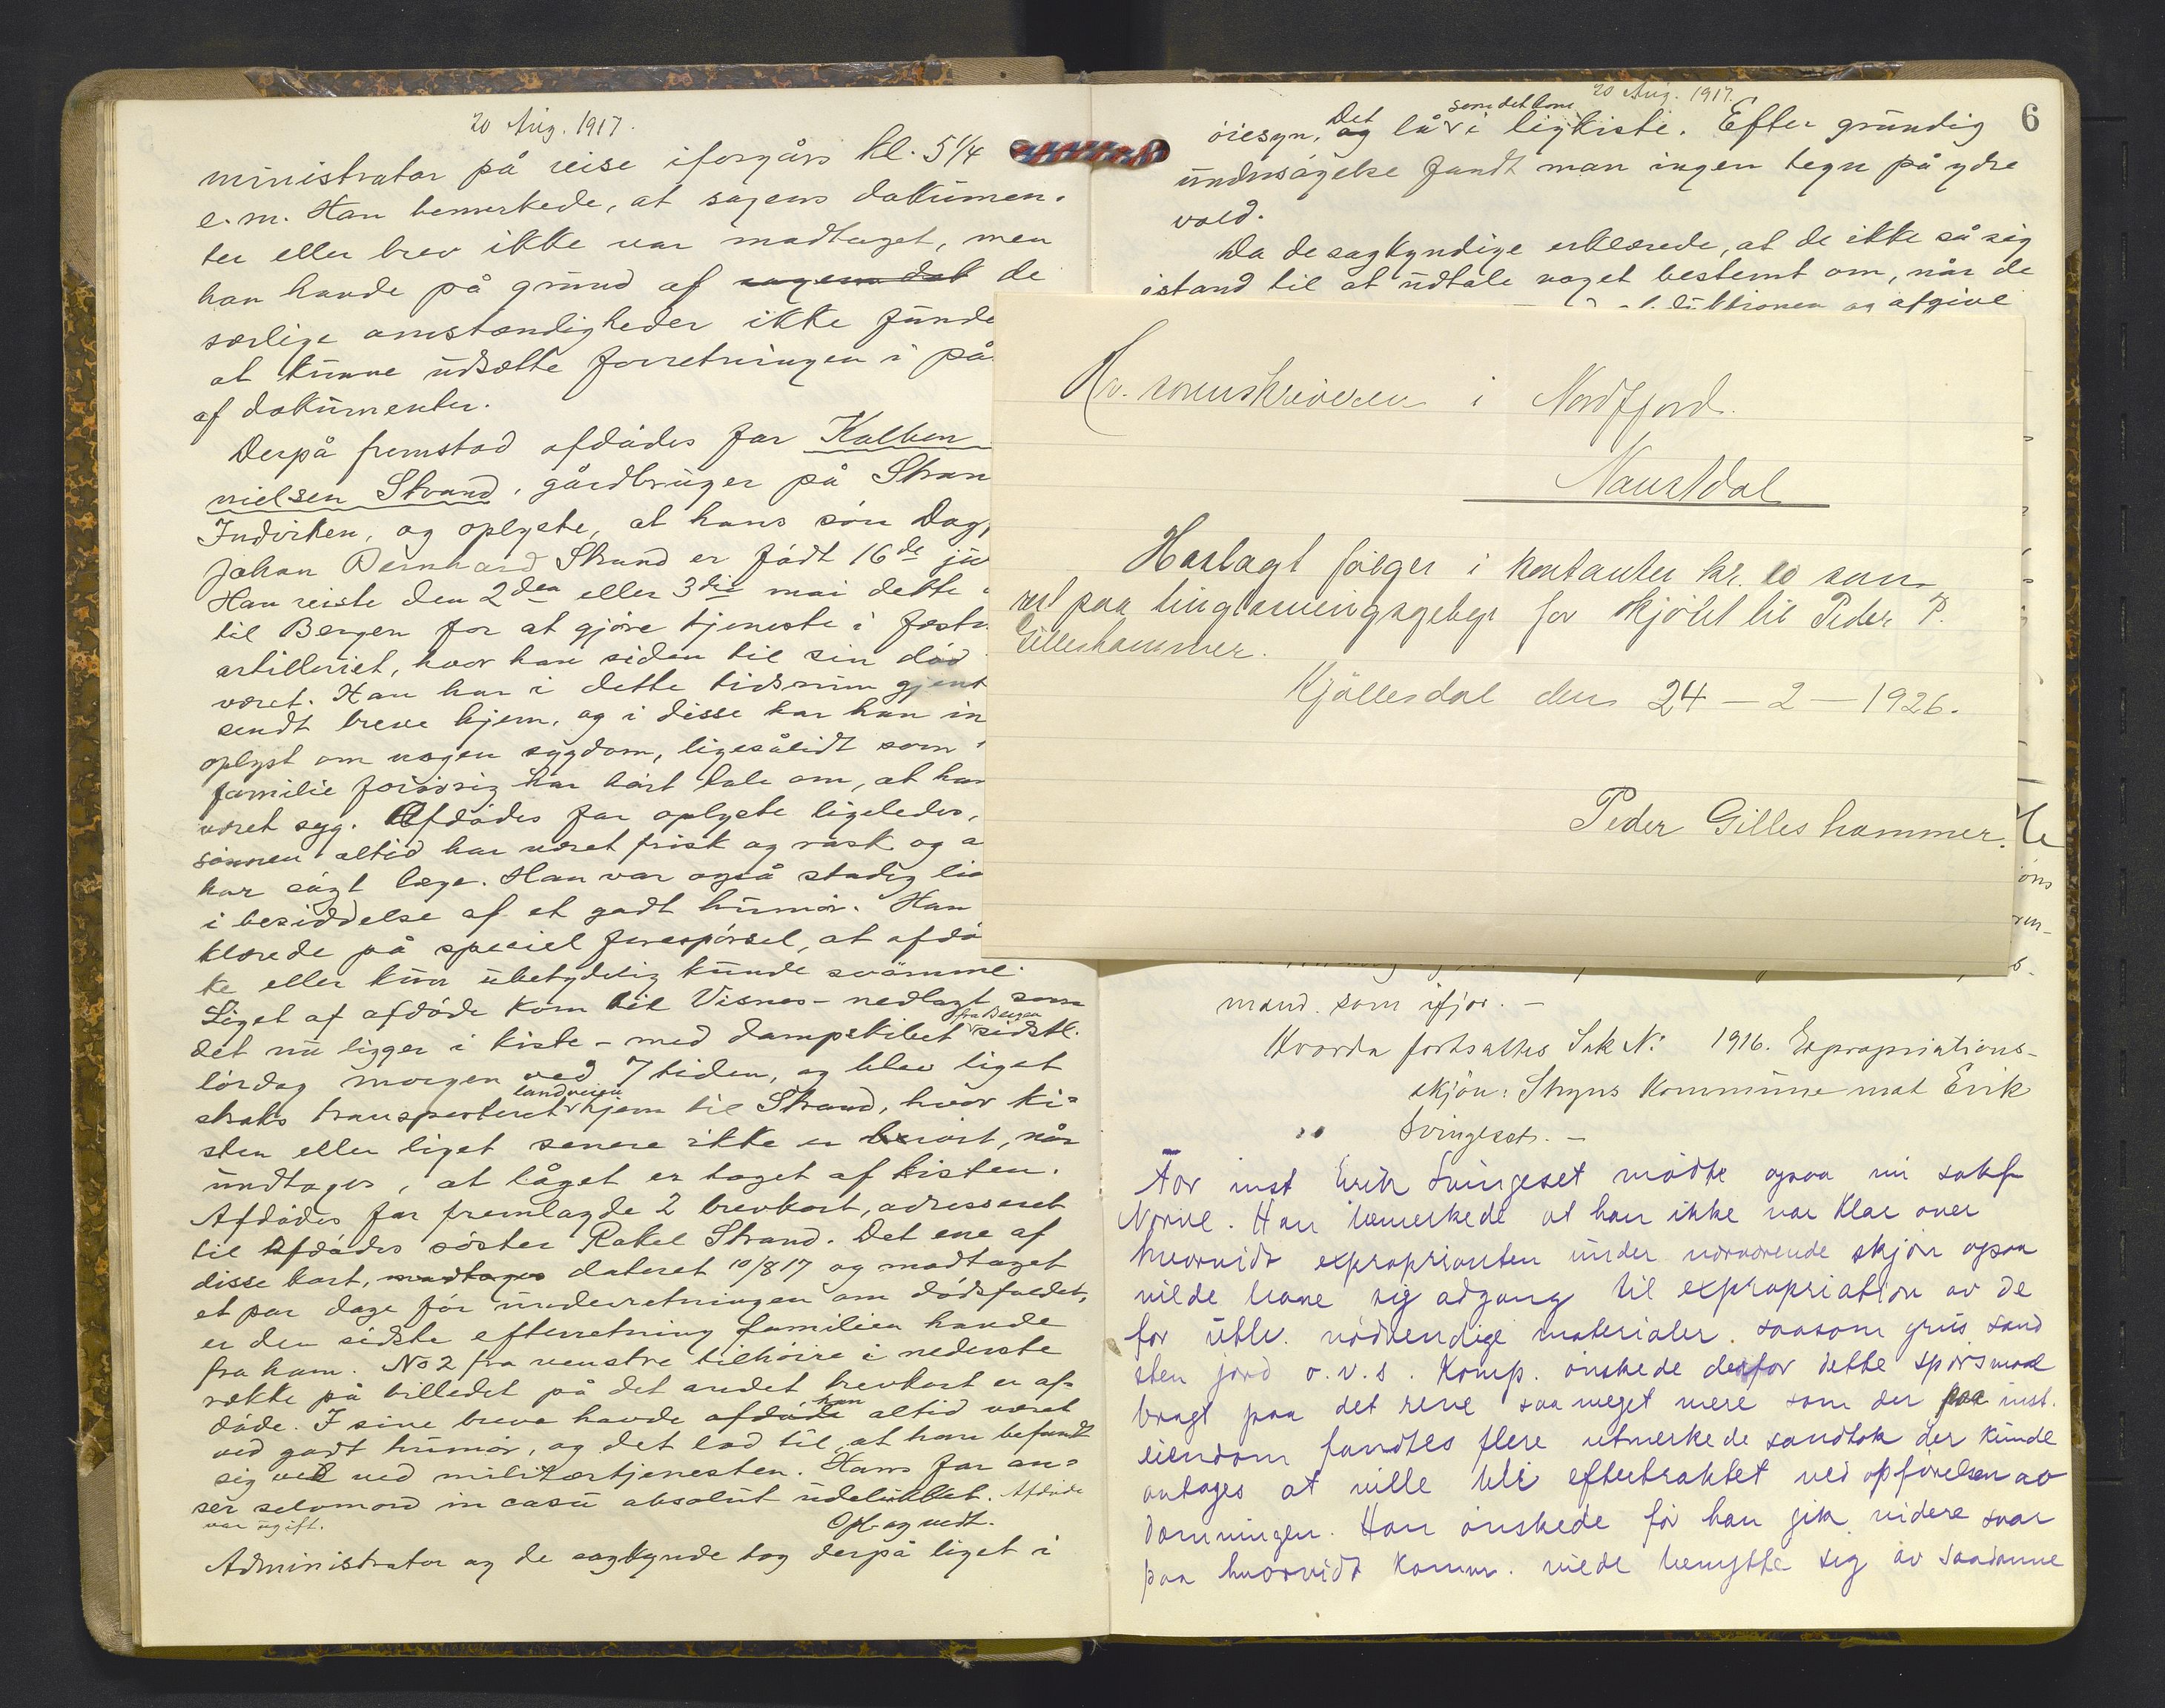 20 Aug. 1917.
ministrator på reise iforgårs kl. 5 1/4
e.m. Han bemerkede, at sagens dokumen-
ter eller brev ikke var modtaget, men
han havde på grund af de
særlige omstændigheder ikke funde
at kunne udsætte forretningen i på
af dokumenter.
Derpå fremstod afdødes far Kolben
nielsen Strand, gårdbruger på Stran
Indviken, og oplyste, at hans søn Dag
Johan Bernhard Strand er født 16de ju
Han reiste den 2den eller 3die mai dette
til Bergen for at gjøre tjeneste i fæstn
artilleriet, hvor han siden til sin død
været. Han har i dette tidsrum gjent
sendt breve hjem, og i disse har han in
oplyst om nogen sygdom, ligesålidt som
familie forøvrig har hørt tale om, at han
været syg. Afdødes far oplyste ligeledes,
sønnen altid har været frisk og rask og a
har søgt læge. Han var også stadig li
i besiddelse af et godt humør. Han
klærede på speciel forespørsel, at afdø
ke eller kun ubetydelig kunde svømme.
Liget af afdøde kom til Visnes - nedlagt som
det nu ligger i kiste - med dampskibet fra Bergen sidstl.
lørdag morgen ved 7 tiden, og blev liget
straks transporteret landveien hjem til Strand, hvor ki-
sten eller liget senere ikke er berørt, når
undtages, at låget er taget af kisten.
Afdødes far fremlagde 2 brevkort, adresseret
til Afdødes søster Rakel Strand. Det ene af
disse kort, dateret 10/8 17 og modtaget
et par dage før underretningen om dødsfaldet,
er den sidste efterretning familien havde
fra ham. No 2 fra venstre tilhøire i nederste
række på billedet på det andet brevkort er af-
døde. I sine breve havde han altid været
ved godt humør, og det lod til, at han befandt
sig vel ved militærtjenesten. Hans far an-
ser selvmord in casu absolut udelukket. Afdøde
var ugift.
Opl. og vedt.
Administrator og de sagkynde tog derpå liget i
20 Aug. 1917.
6
øiesyn. Det lå som det kom i ligkiste. Efter grundig
undersøgelse fandt man ingen tegn på ydre
vold.
Da de sagkyndige erklærede, at de ikke så sig
istand til at udtale noget bestemt om, når de
og afgive
Hr. sorenskriveren i Nordfjord.
Naustdal
Herlagt følger i kontanter kr. 10 som
rest paa tinglæsningsgebyr for skjøtet til Peder P.
Gilleshammer.
Kjøllesdal den 24 - 2 - 1926.
Peder Gilleshammer.
mand som ifjor. -
Hvorda fortsattes Sak No 1916. Expropriations-
skjøn: Stryns Kommune mot Erik
Svingeset. -
For inst Erik Svingeset mødte ogsaa nu sakf
Norve. Han bemerkede at han ikke var klar over
hvorvidt exproprianten under nærværende skjøn ogsaa
vilde have sig adgang til expropriation av de
for utbl. nødvendige materialer saasom grus sand
sten jord o.v.s. Komp. ønskede derfor dette spørsmaal
bragt paa det rene saa meget mere som der paa inst.
eiendom fandtes flere utmerkede sandtak der kunde
antages at ville bli eftertraktet ved opførelsen av
dæmningen. Han ønskede før han gik videre svar
paa hvorvidt komm. vilde benytte sig av saadanne